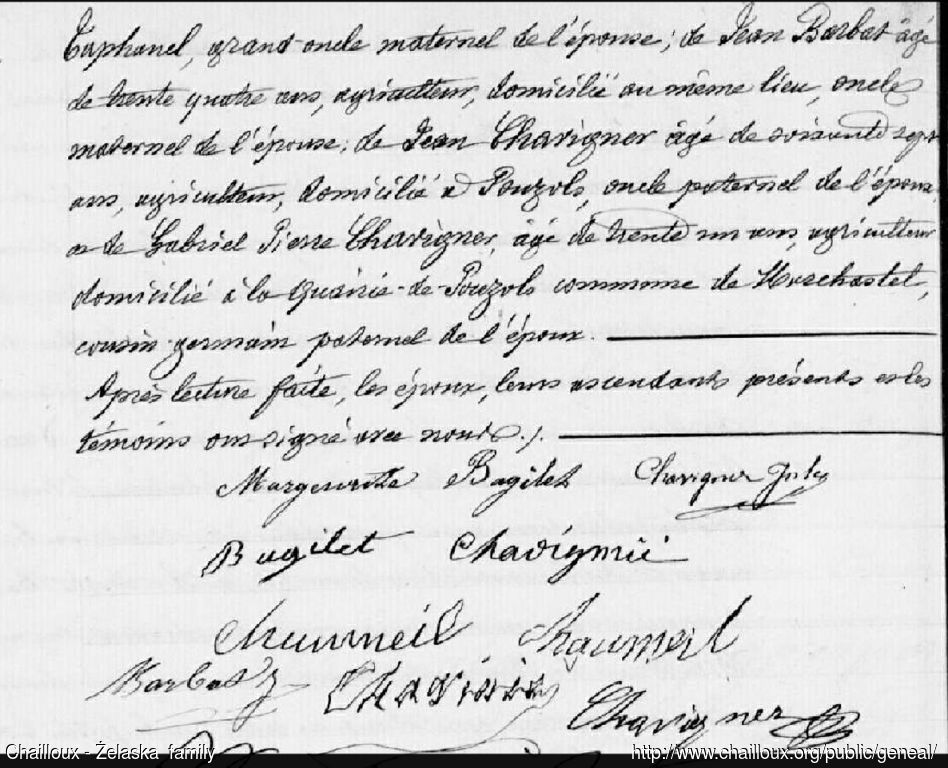 Taphanel, grand oncle maternel de l'épouse; de Jean Barbat âgé
de trente quatre ans, agriculteur, domicilié au même lieu, oncle
maternel de l'épouse; de Jean Chavigner âgé de soixante sept
ans, agriculteur, domicilié à Pouzols, oncle paternel de l'époux,
et de Gabriel Pierre Chavigner, âgé de trente un ans, agriculteur
domicilié à la de Pouzols commune de
cousin germain paternel de l'époux.
Après lecture faite, les époux, leurs ascendants présents et les
témoins ont signé avec nous ./.
Marguerite Bagilet Chavigner Jules
Bagilet
Barbat
Chavigner
Chailloux - Żelaska family http://www.chailloux.org/public/geneal/